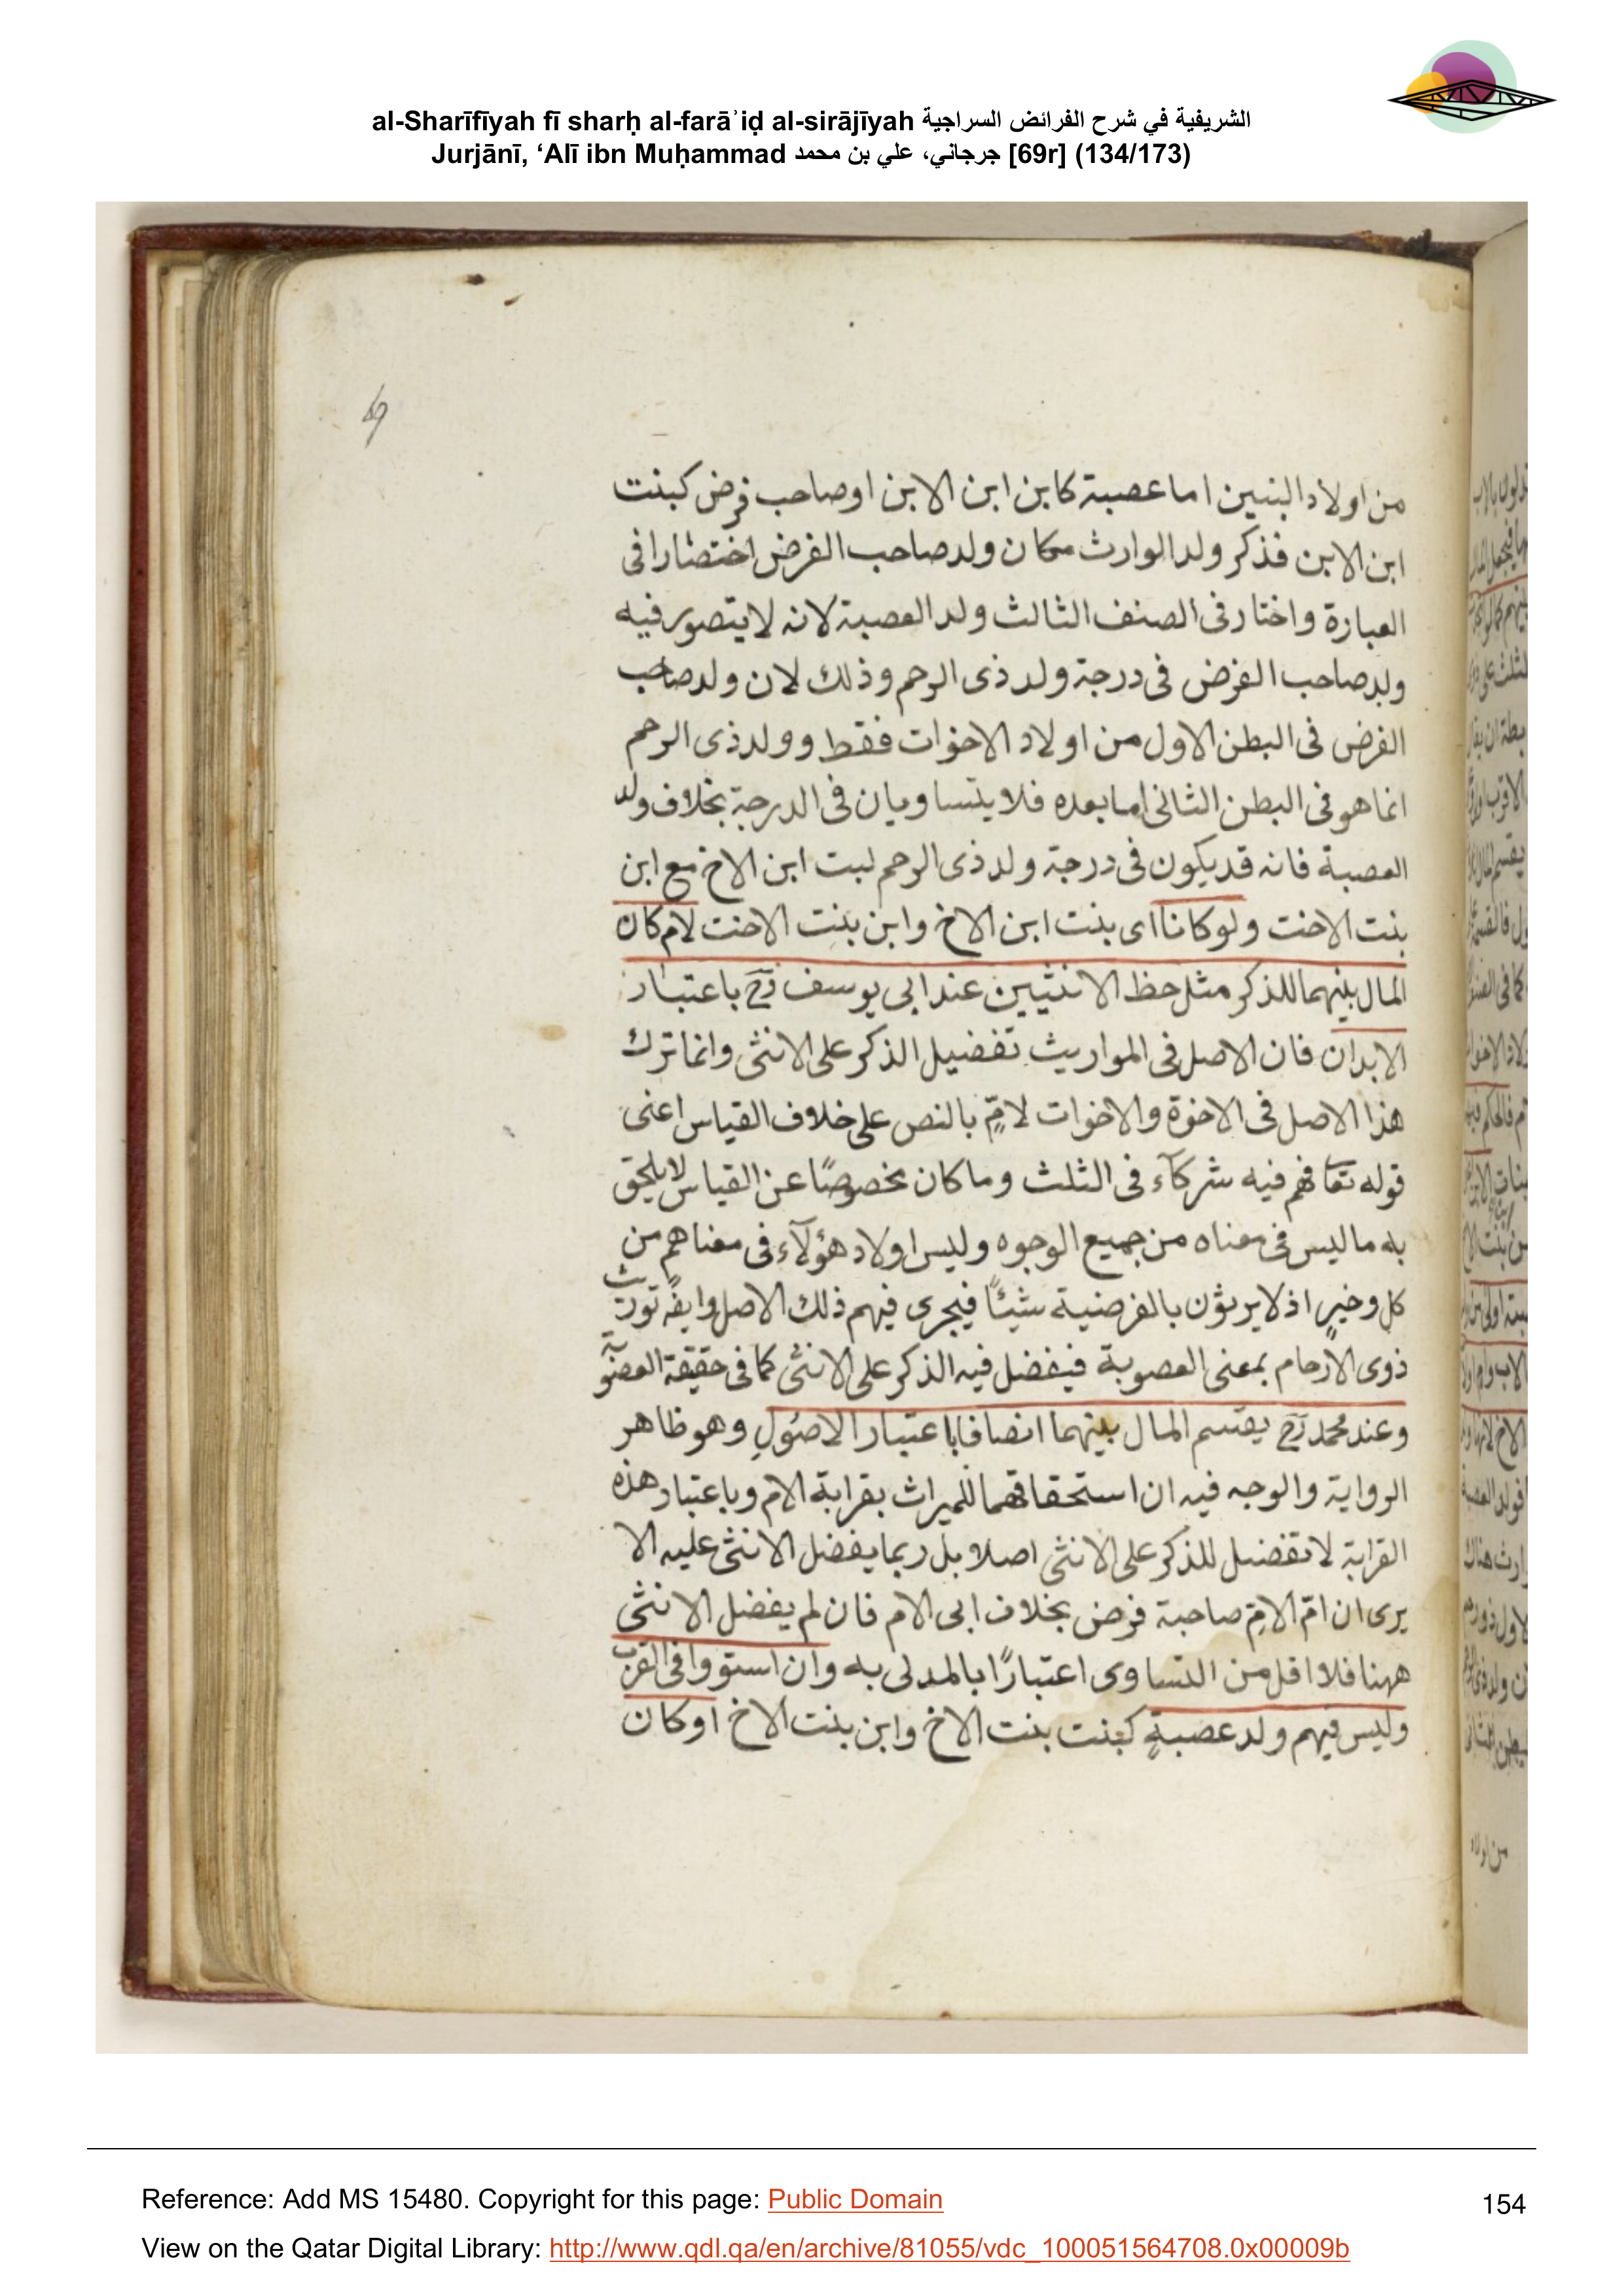 al-Sharīfīyah fī sharḥ al-farāʾiḍ al-sirājīyah الشريفية في شرح الفرائض السراجية
Jurjānī, ‘Alī ibn Muḥammad جرجاني، علي بن محمد [69r] (134/173)
69
من اولاد البنين اما عصبة كابن ابن الابن او صاحب فرض كبنت
ابن الابن فذكر ولد الوارث مكان ولد صاحب الفرض اختصارا فى
العبارة واختار فى الصنف الثالث ولد العصبة لانه لا يتصور فيه
ولد صاحب الفرض فى درجة ولد ذى الرحم وذلك لان ولد صاحب
الفرض فى البطن الاول من اولاد الاخوات فقط وولد ذى الرحم
انما هو فى البطن الثانى اما بعده فلا يتساويان فى الدرجة بخلاف ولد
العصبة فانه قد يكون فى درجة ولد ذى الرحم لبت ابن الاخ مع ابن
بنت الاخت ولو كانا اى بنت ابن الاخ وابن بنت الاخت لام كان
المال بينهما للذكر مثل حظ الانثيين عند ابى يوسف رح باعتبار
الابدان فان الاصل فى المواريث تفضيل الذكر على الانثى وانما ترك
هذا الاصل فى الاخوة والاخوات لامٍّ بالنص على خلاف القياس اعنى
قوله تعا فهم فيه شركآء فى الثلث وما كان مخصوصًا عن القياس لا يلحق
به ما ليس فى معناه من جميع الوجوه وليس اولاد هؤلآء فى معناهم من
كل وخيرٍ اذ لا يرثون بالفرضية شيئًا فيجرى فيهم ذلك الاصل وايضً توريث
ذوى الارحام بمعنى العصوبة فيفضل فيه الذكر على الانثى كما فى حقيقة العصوبة
وعند محمد رح يقسم المال بينهما انصافا باعتبار الاصول وهو ظاهر
الرواية والوجه فيه ان استحقاقهما للميراث بقرابة الام وباعتبار هذه
القرابة لا تفضيل للذكر على الانثى اصلا بل ربما يفضل الانثى عليه الا
يرى ان امّ الامّ صاحبة فرض بخلاف ابى الام فان لم يفضل الانثى
ههنا فلا اقل من التساوى اعتبارًا بالمدلى به وان استووا فى القرب
وليس فيهم ولد عصبةٍ كبنت بنت الاخ وابن بنت الاخ او كان
من اولاد
Reference: Add MS 15480. Copyright for this page: Public Domain
154
View on the Qatar Digital Library: http://www.qdl.qa/en/archive/81055/vdc_100051564708.0x00009b